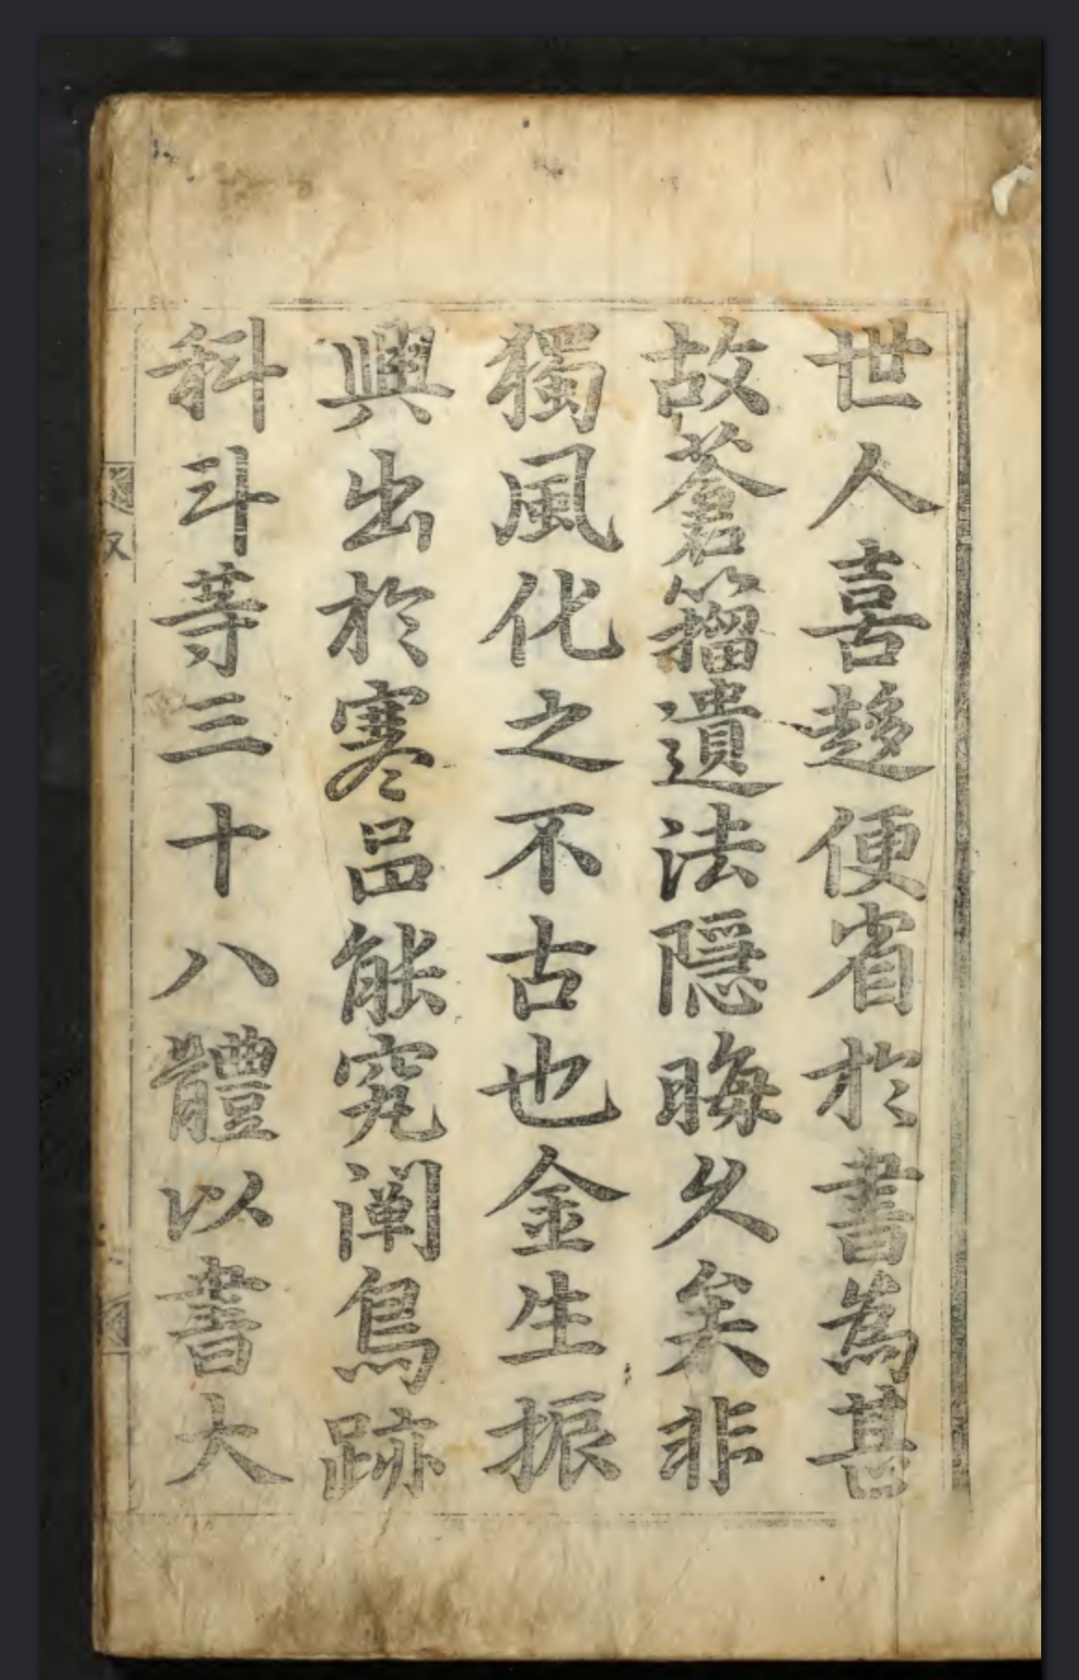 世人喜趍便省於書為甚
故蒼籀遺法隱晦久矣非
獨風化之不古也金生振
興出於寒邑能究闡鳥跡
科斗等三十八體以書大